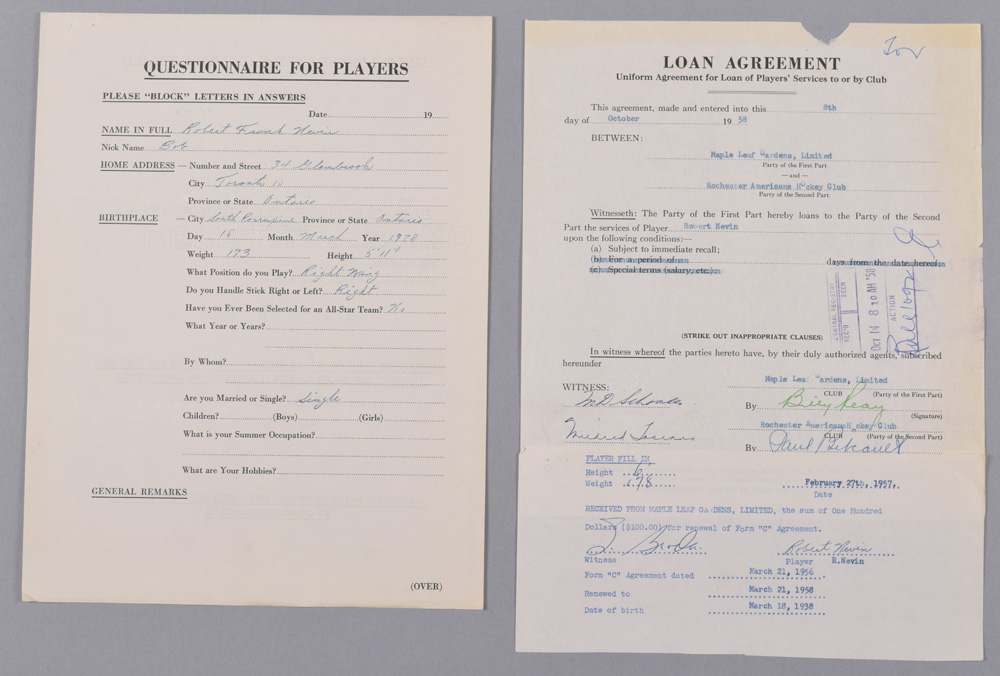 QUESTIONNAIRE FOR PLAYERS
PLEASE "BLOCK" LETTERS IN ANSWERS
Date 19
NAME IN FULL Robert Frank Nevin
Nick Name Bob
HOME ADDRESS — Number and Street 34 Glenbrook
City Toronto 10
Province or State Ontario
BIRTHPLACE — City South Porcupine Province or State Ontario
Day 18 Month March Year 1938
Weight 173 Height 5'11"
What Position do you Play? Right Wing
Do you Handle Stick Right or Left? Right
Have you Ever Been Selected for an All-Star Team? No
What Year or Years?
By Whom?
Are you Married or Single? Single
Children? (Boys) (Girls)
What is your Summer Occupation?
What are Your Hobbies?
GENERAL REMARKS
(OVER)
Tor
LOAN AGREEMENT
Uniform Agreement for Loan of Players' Services to or by Club
This agreement, made and entered into this 8th
day of October 19 58
BETWEEN:
Maple Leaf Gardens, Limited
Party of the First Part
— and —
Rochester Americans Hockey Club
Party of the Second Part.
Witnesseth: The Party of the First Part hereby loans to the Party of the Second
Part the services of Player Robert Nevin
upon the following conditions:—
(a) Subject to immediate recall;
(b) For a period of an days from the date hereof;
(c) Special terms (salary, etc.)
CENTRAL REGISTRY
REC'D SEEN
Oct 14 8 10 AM '58
ACTION
(STRIKE OUT INAPPROPRIATE CLAUSES)
In witness whereof the parties hereto have, by their duly authorized agents, subscribed
hereunder
WITNESS:
Maple Leaf Gardens, Limited
CLUB (Party of the First Part)
By Billy Reay
(Signature)
Rochester Americans Hockey Club
CLUB (Party of the Second Part)
Mildred
By
PLAYER FILL IN
Height 6
Weight 178
February 27th, 1957.
Date
RECEIVED FROM MAPLE LEAF GARDENS, LIMITED, the sum of One Hundred
Dollars ($100.00) for renewal of Form "C" Agreement.
Broda Robert Nevin
Witness Player R.Nevin
Form "C" Agreement dated March 21, 1956
Renewed to March 21, 1958
Date of birth March 18, 1938